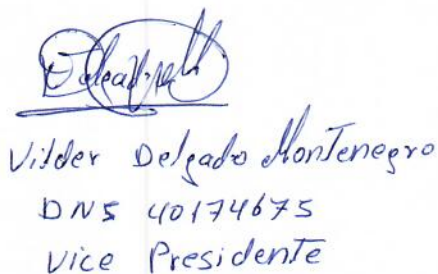 Vilder Delgado Montenegro
DNS 40174675
Vice Presidente